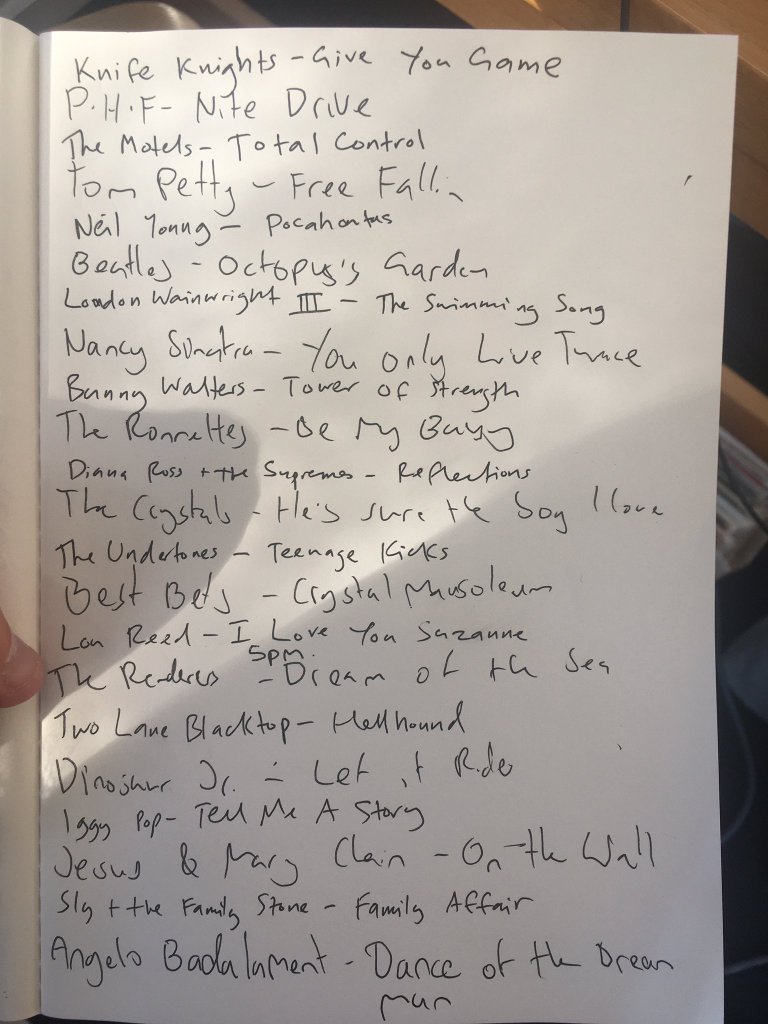 Knife Knights - Give You Game
P.H.F - Nite Drive
The Motels - Total Control
Tom Petty - Free Fallin
Neil Young - Pocahontas
Beatles - Octopus's Garden
Loudon Wainwright III - The Swimming Song
Nancy Sinatra - You Only Live Twice
Bunny Walters - Tower of Strength
The Ronnettes - Be My Baby
Diana Ross + the Supremes - Reflections
The Crystals - He's sure the boy I love
The Undertones - Teenage Kicks
Best Bets - Crystal Musoleum
Lou Reed - I Love You Suzanne
5pm.
The Renderers - Dream of the Sea
Two Lane Blacktop - Hellhound
Dinosaur Jr. - Let it Ride
Iggy Pop - Tell Me A Story
Jesus & Mary Chain - On the Wall
Sly + the Family Stone - Family Affair
Angelo Badalament - Dance of the Dream
man